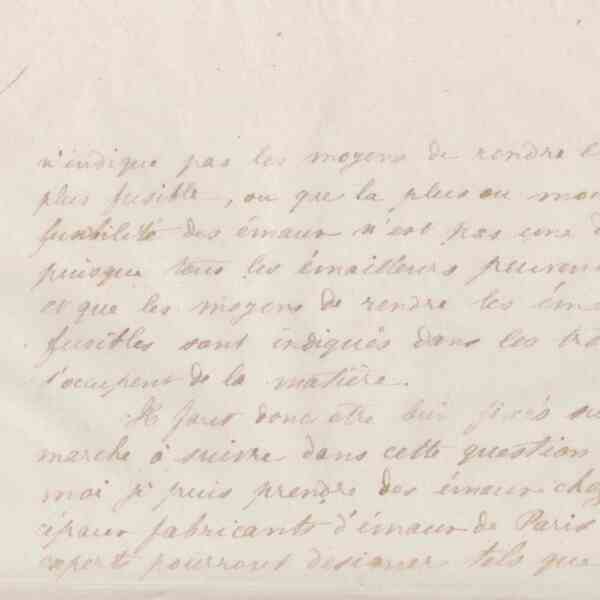 n'indique pas les moyens de rendre
plus fusible, ou que la plus ou
fusibilité des émaux n'est pas une
puisque tous les émailleurs
et que les moyens de rendre les
fusibles sont indiqués dans les
s'occupent de la matière.
Il faut donc être fixés
marche à suivre dans cette question
moi je puis prendre des émaux chez
fabricants d'émaux de Paris
expert pourront désigner tels que